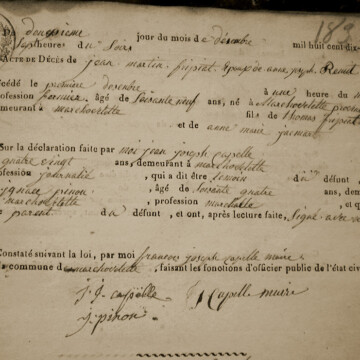 189
Du deuxieme jour du mois de decembre mil huit cent dix
à sept heures du soir
ACTE DE DÉCÈS de jean martin Epoux de anne joseph
décédé le premiere decembre à une heure du
profession fermier, âgé de soixante neuf ans, né à Marchovelette
demeurant à marchovelette fils de thomas
et de anne marie jacmart
Sur la déclaration faite par moi jean joseph capelle
quatre vingt ans, demeurant à marchovelette
profession journalier, qui a dit être temoin du défunt,
ignace pinon, âgé de soixante quatre ans,
marchovelette, profession marechalle
parent du défunt, et ont, après lecture faite, signé avec
Constaté suivant la loi, par moi françois joseph capelle maire
la commune de marchovelette, faisant les fonctions d'officier public de l'état civ
j. j. capelle f j Capelle maire
j. pinon